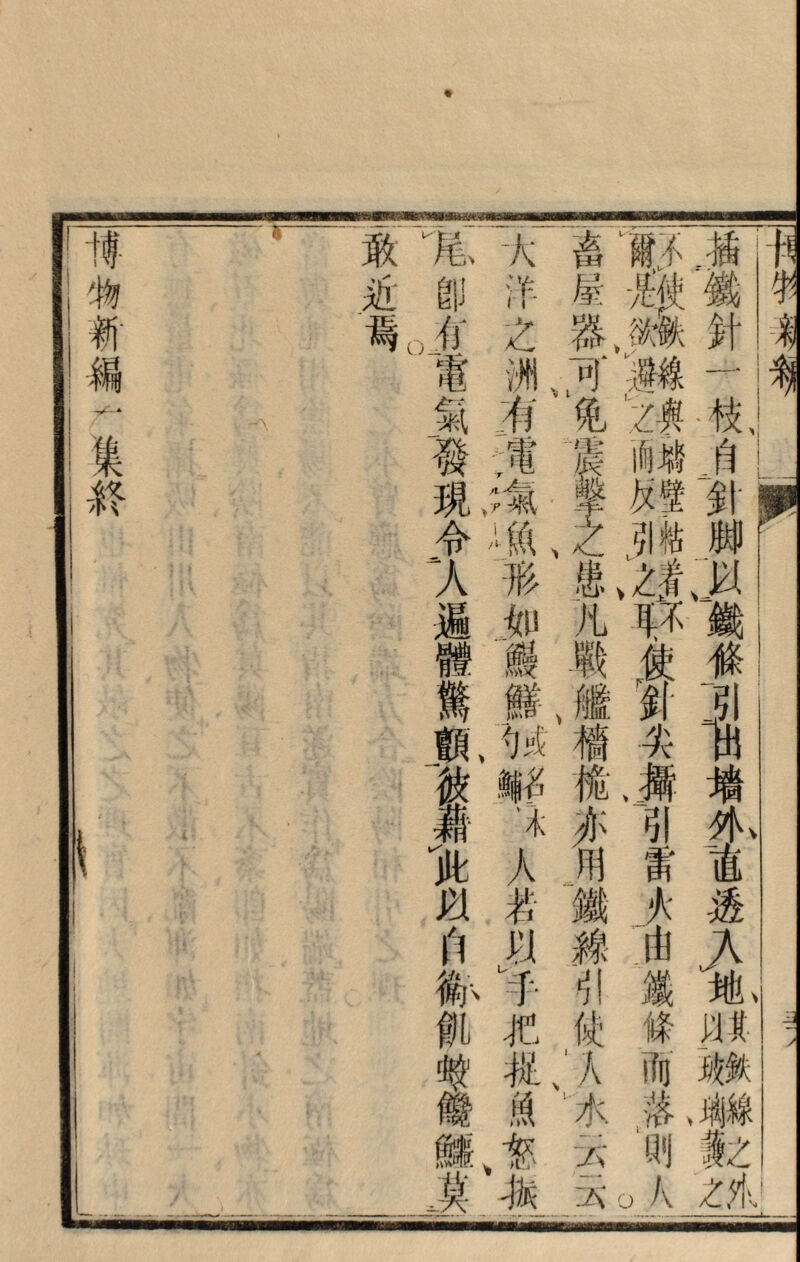 博物新編
插鐵針一枝自針脚以鐵條引出墻外直透入地其鉄線之外以玻璃護之
不使鉄線與墻壁粘着不爾是欲避之而反引之耳使針尖攝引雷火由鐵條而落則人
畜屋器可免震擊之患凡戰艦檣桅亦用鐵線引使入水云云
大洋之洲有電氣魚形如鰻鱔或名木勺鯆人若以手把捉魚怒振
尾卽有電氣發現令人遍體驚顫彼藉此以自衞飢蛟饞鱷莫
敢近焉
博物新編一集終